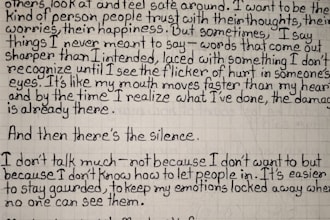 others look at and feel safe around. I want to be the
kind of person people trust with their thoughts, their
worries, their happiness. But sometimes, I say
things I never meant to say — words that come out
sharper than I intended, laced with something I don't
recognize until I see the flicker of hurt in someone's
eyes. It's like my mouth moves faster than my hear
and by the time I realize what I've done, the damag
is already there.
And then there's the silence.
I don't talk much — not because I don't want to but
because I don't know how to let people in. It's easier
to stay gaurded, to keep my emotions locked away wher
no one can see them.